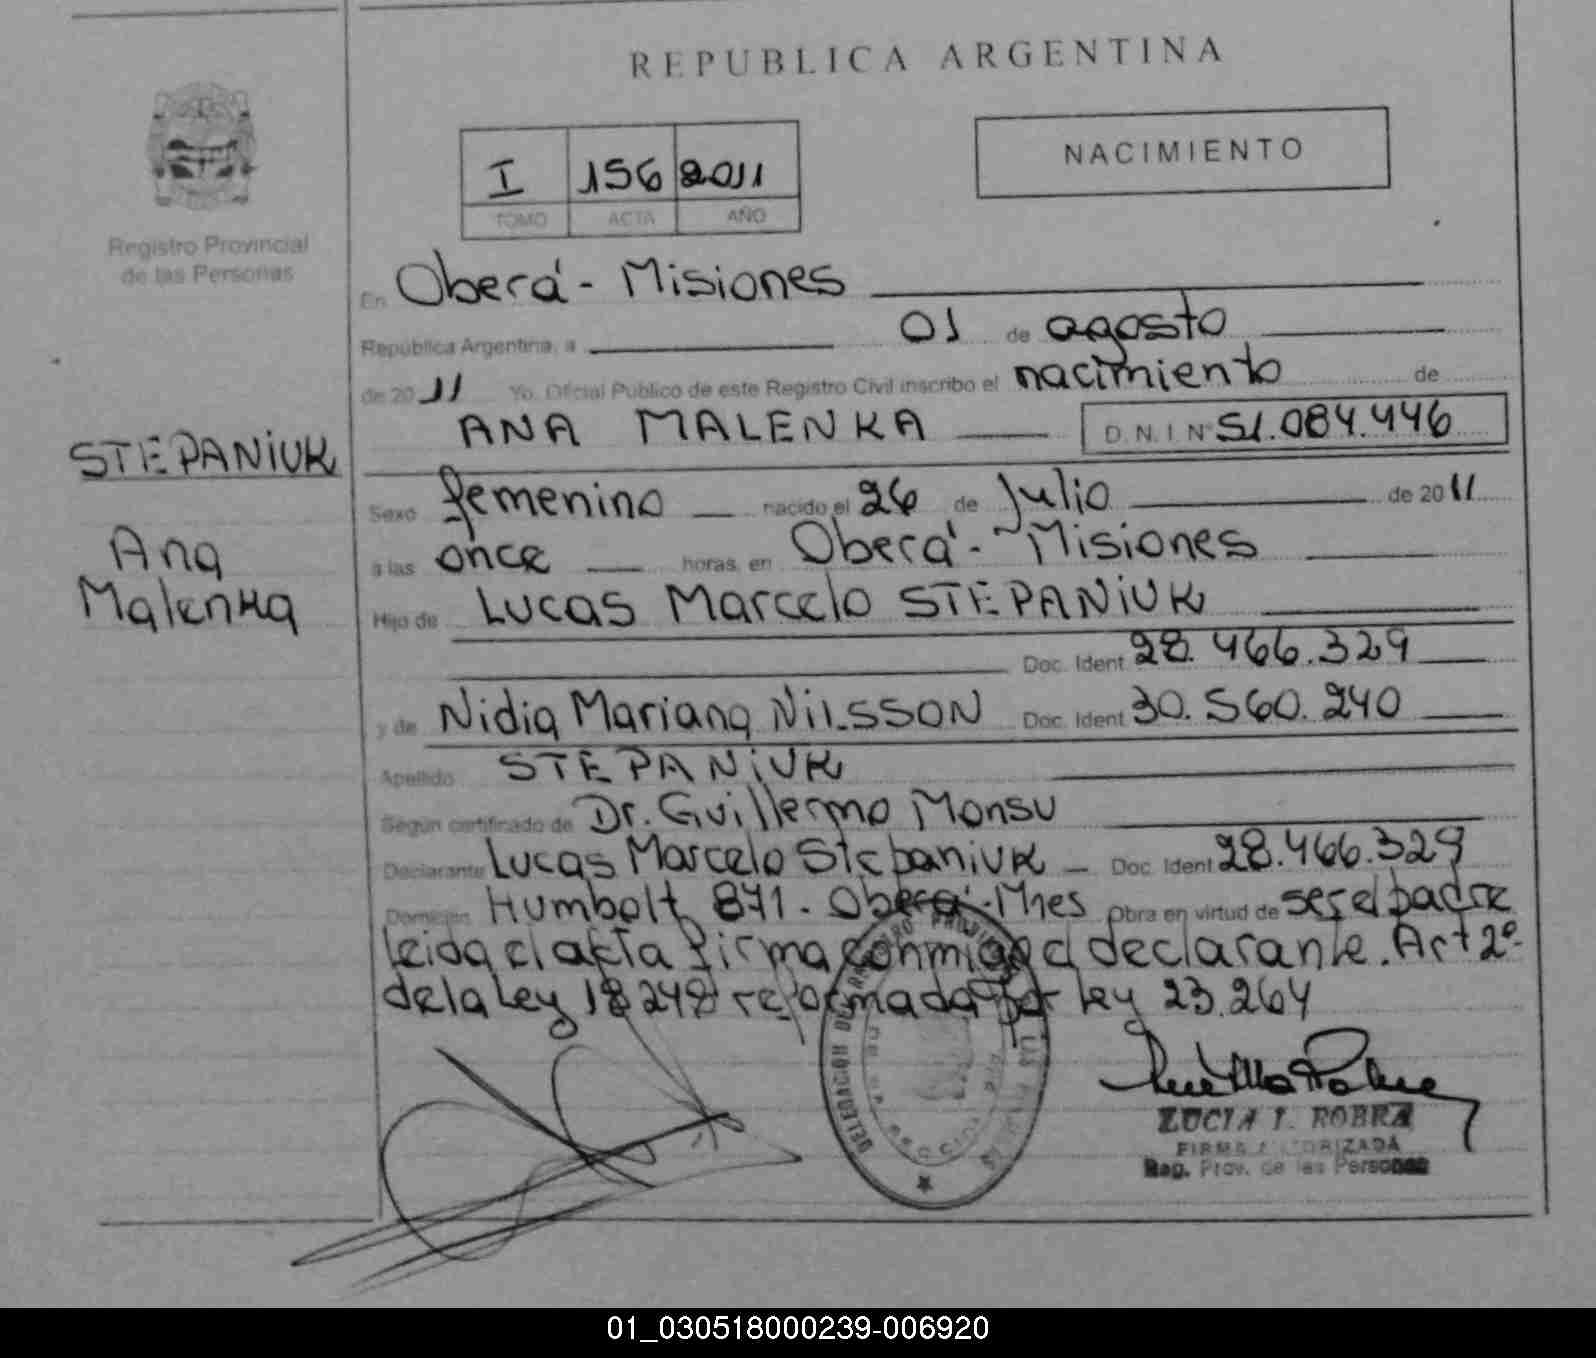 REPUBLICA ARGENTINA
NACIMIENTO
I 156 2011
TOMO ACTA AÑO
Registro Provincial
de las Personas
En Oberá - Misiones
República Argentina, a 01 de agosto
de 2011 Yo, Oficial Público de este Registro Civil inscribo el nacimiento de
ANA MALENKA D.N.I. Nº 51.084.446
STEPANIUK
Ana
Malenka
Sexo femenino nacido el 26 de Julio de 2011
a las once horas, en Oberá - Misiones
Hijo de Lucas Marcelo STEPANIUK
Doc. Ident 28.466.329
y de Nidia Mariana NILSSON Doc. Ident 30.560.240
Apellido STEPANIUK
Según certificado de Dr. Guillermo Monsu
Declarante Lucas Marcelo Stepaniuk Doc. Ident 28.466.329
Domicilio Humbolt 871 - Oberá - Mnes Obra en virtud de ser el padre
leida el acta firma conmigo el declarante. Art 2º
de la Ley 18248 reformada por ley 23.264
LUCIA I. ROBRA
FIRMA AUTORIZADA
Reg. Prov. de las Personas
01_030518000239-006920